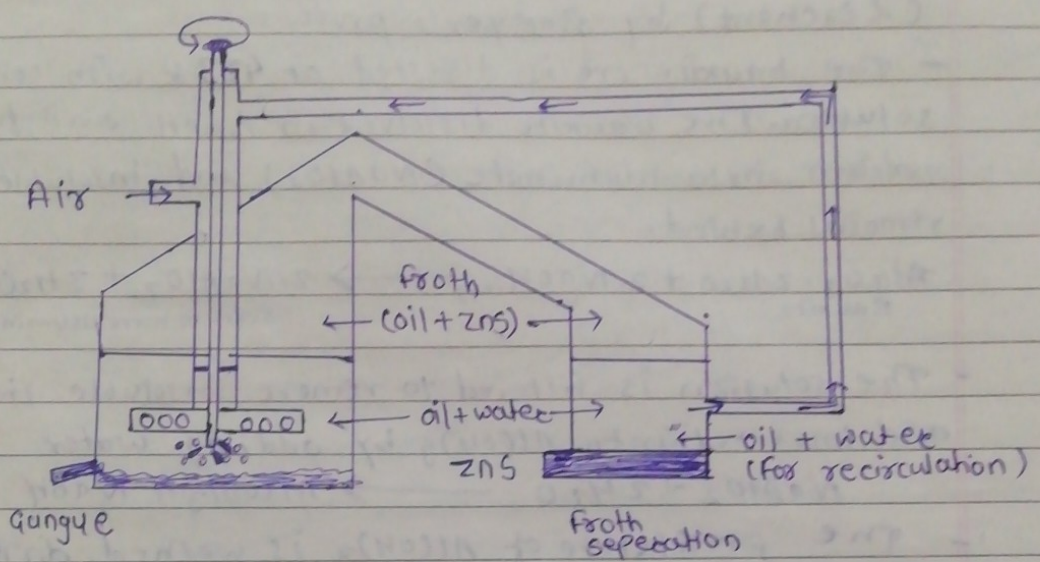 Air
froth
(oil + zns)
oil + water
zns
oil + water
(for recirculation)
Gungue
froth
seperation